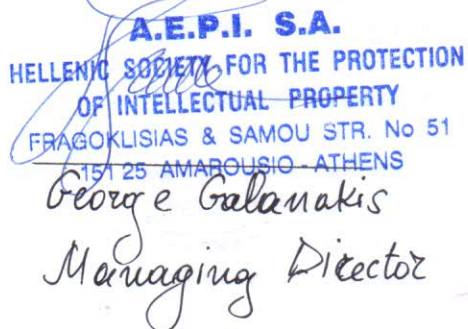 A.E.P.I. S.A.
HELLENIC SOCIETY FOR THE PROTECTION
OF INTELLECTUAL PROPERTY
FRAGOKLISIAS & SAMOU STR. No 51
151 25 AMAROUSIO - ATHENS
George Galanakis
Managing Director